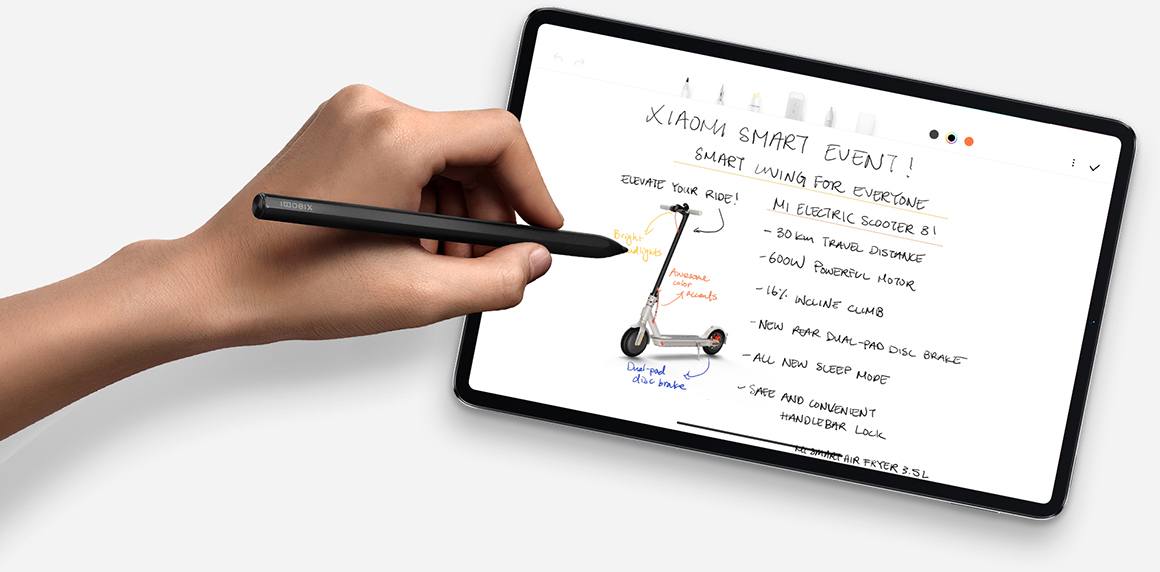 XIAOMI SMART EVENT!
SMART LIVING FOR EVERYONE
ELEVATE YOUR RIDE!
MI ELECTRIC SCOOTER 3!
- 30 km TRAVEL DISTANCE
- 600W POWERFUL MOTOR
- 16% INCLINE CLIMB
- NEW REAR DUAL-PAD DISC BRAKE
- ALL NEW SLEEP MODE
- SAFE AND CONVENIENT
HANDLEBAR LOCK
MI SMART AIR FRYER 3.5L
Bright
adlights
Awesome
color
accents
Dual-pad
disc brake
xiaomi